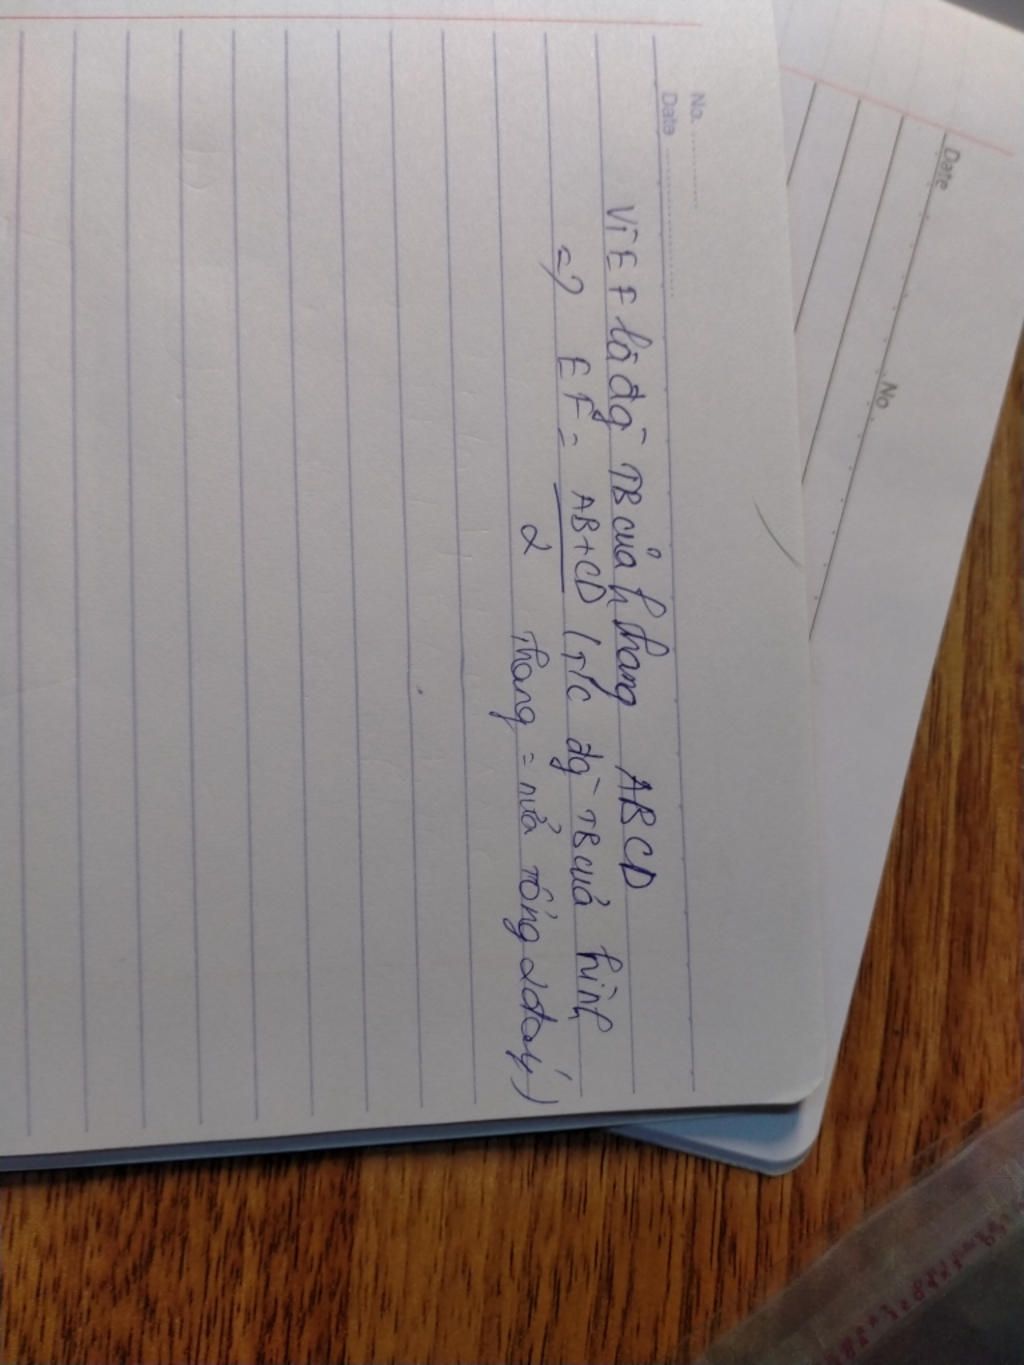 No.
Date
Vì EF là đg TB của h thang ABCD
=> EF = AB+CD (T/c đg TB của hình
2 thang = nửa tổng 2 đáy)
Date
No